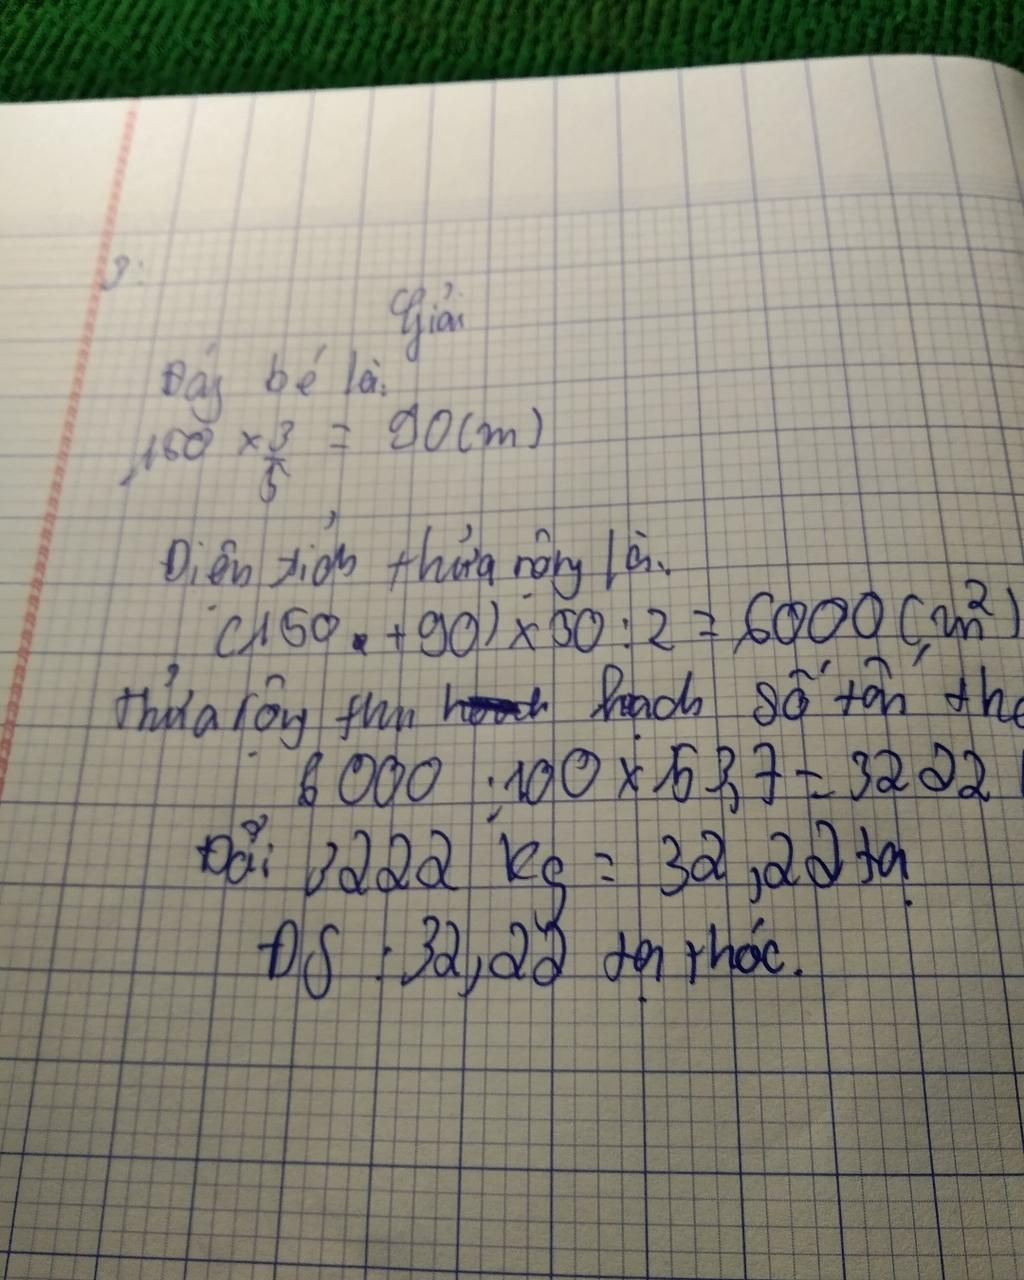 3:
Giải
Đáy bé là:
150 × 3/5 = 90(m)
Diện tích thửa ruộng là:
(150 + 90) × 50 : 2 = 6000 (m²)
Thửa ruộng thu hoạch số tấn
6000 : 100 × 53,7 = 3222
Đổi 3222 kg = 32,22 tạ
ĐS : 32,22 tạ thóc.